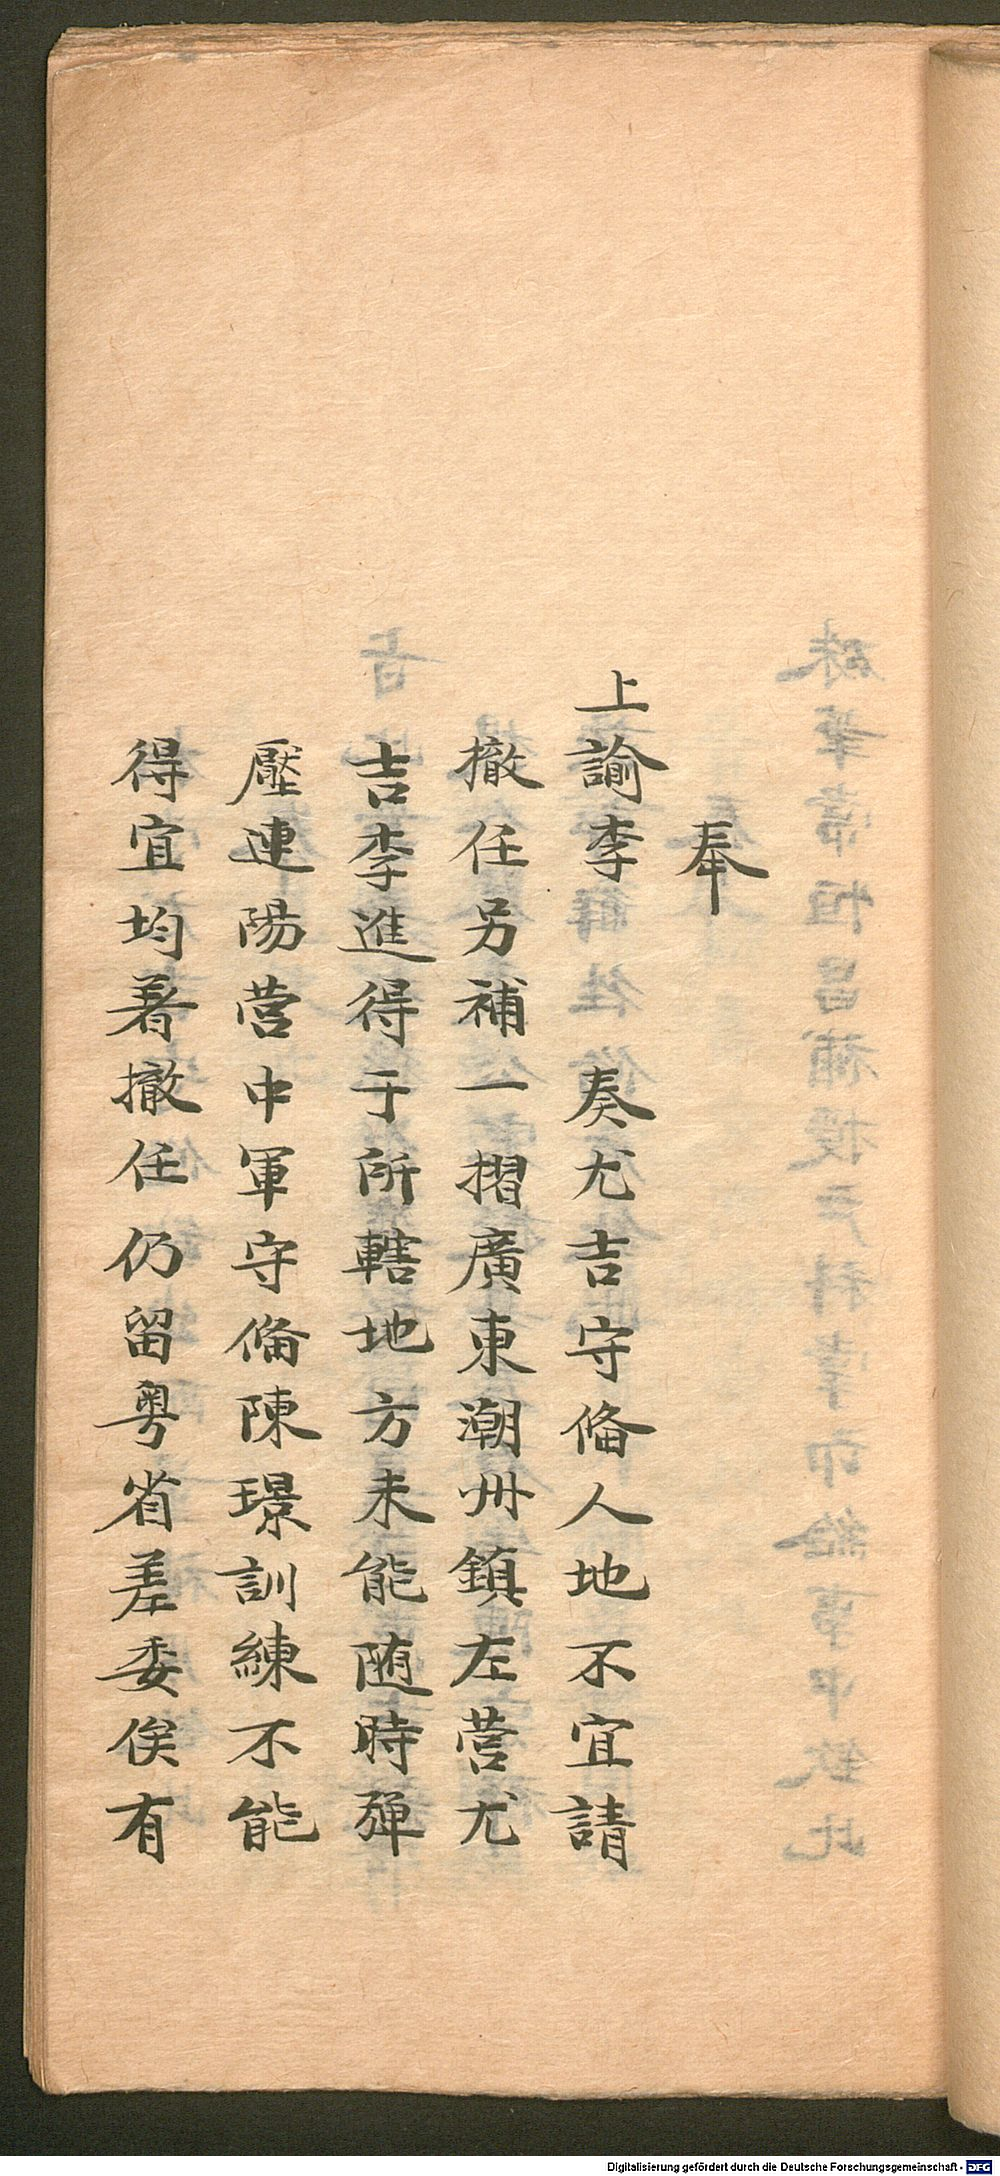 奉
上諭李　　奏尤吉守俻人地不宜請
撤任另補一摺廣東潮州鎮左營尤
吉李進得于所轄地方未能随時彈
壓連陽營中軍守俻陳璟訓練不能
得宜均著撤任仍留粤省差委俟有
Digitalisierung gefördert durch die Deutsche Forschungsgemeinschaft - DFG